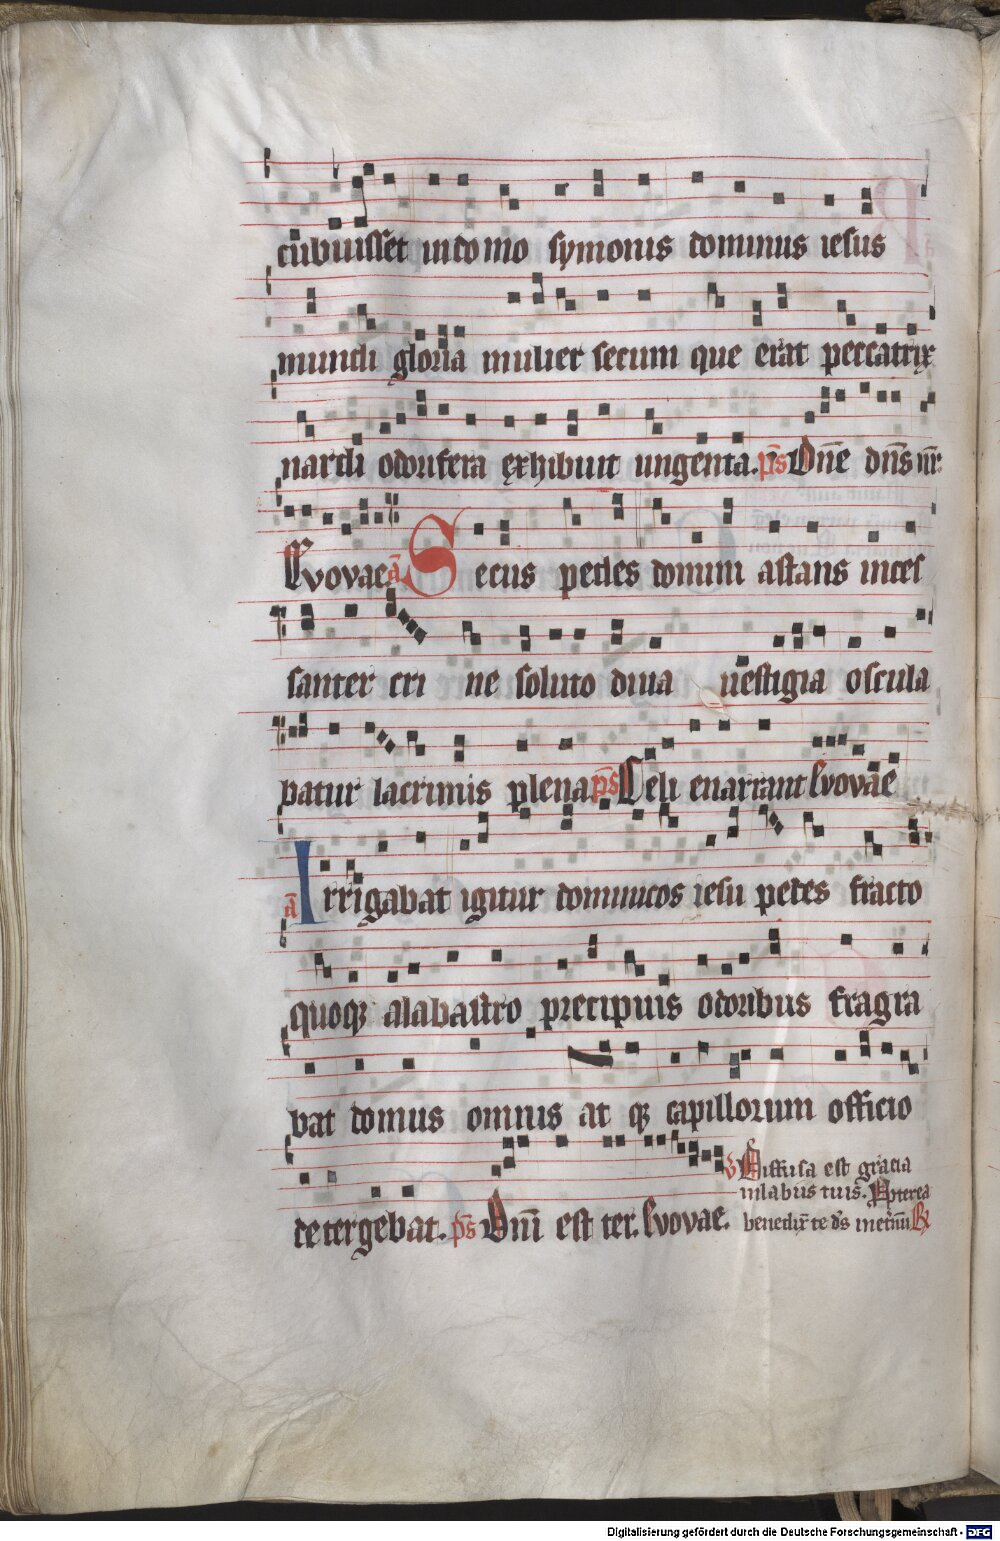 cubuisset in domo symonis dominus iesus
mundi gloria mulier secum que erat peccatrix
nardi odorifera exhibuit ungenta. p̄s Dn̄e dn̄s nr̄
Evovae. ā Secus pedes domini astans inces
santer cri ne soluto diua uestigia oscula
batur lacrimis plena p̄s Celi enarrant Evovae
ā Irrigabat igitur dominicos iesu pedes fracto
quoqꝫ alabastro precipuis odoribus fragra
bat domus omnis at qꝫ capillorum officio
detergebat. p̄s Dn̄i est ter. Evovae.
v Diffusa est gracia
in labiis tuis. Ppterea
benedix̄ te d̄s
Digitalisierung gefördert durch die Deutsche Forschungsgemeinschaft - DFG